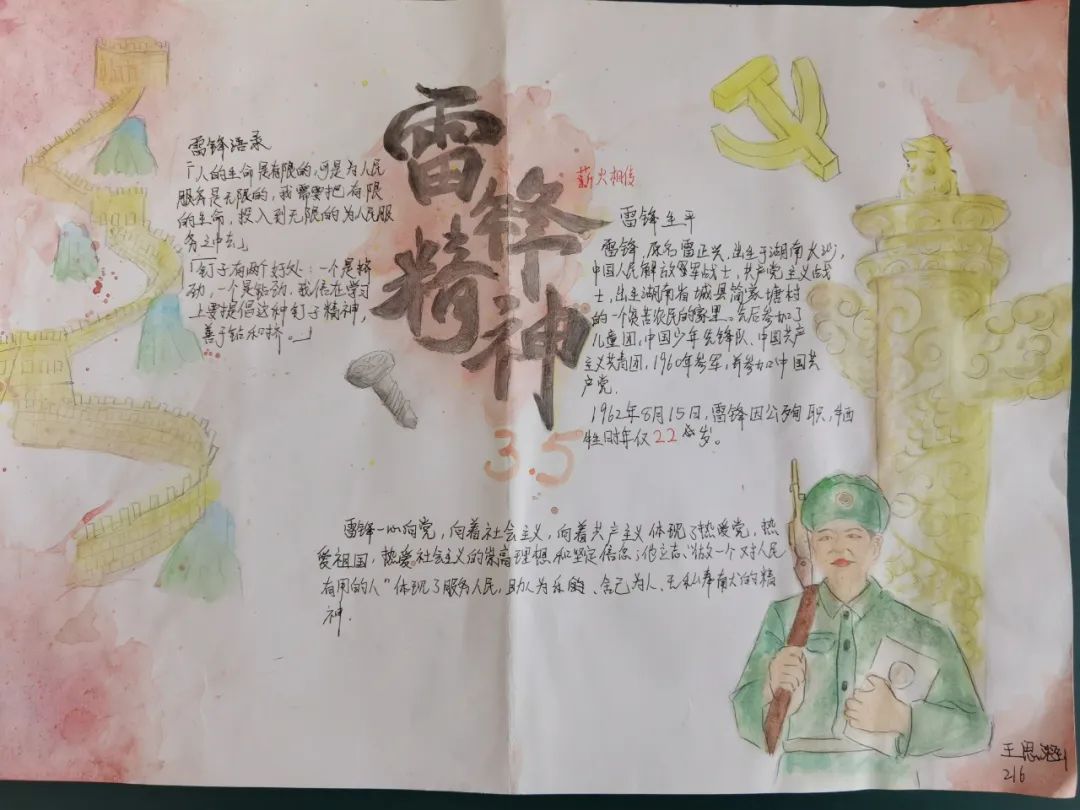 雷锋精神
3.5
薪火相传
雷锋语录
「人的生命是有限的，可是为人民
服务是无限的，我需要把有限
的生命，投入到无限的为人民服
务之中去」
「钉子有两个好处：一个是挤
劲，一个是钻劲，我们在学习
上要提倡这种钉子精神，
善于钻和挤。」
雷锋生平
雷锋，原名雷正兴，出生于湖南长沙，
中国人民解放军战士，共产主义战
士，出生湖南省城县简家塘村
的一个贫苦农民的家里。先后参加了
儿童团，中国少年先锋队、中国共产
主义共青团，1960年参军，并参加中国共
产党.
1962年8月15日，雷锋因公殉职，牺
牲时年仅22岁。
雷锋一心向党，向着社会主义，向着共产主义体现了热爱党，热
爱祖国，热爱社会主义的崇高理想和坚定信念；他立志"做一个对人民
有用的人"体现了服务人民，助人为乐的、舍己为人、无私奉献的精
神.
王思
216